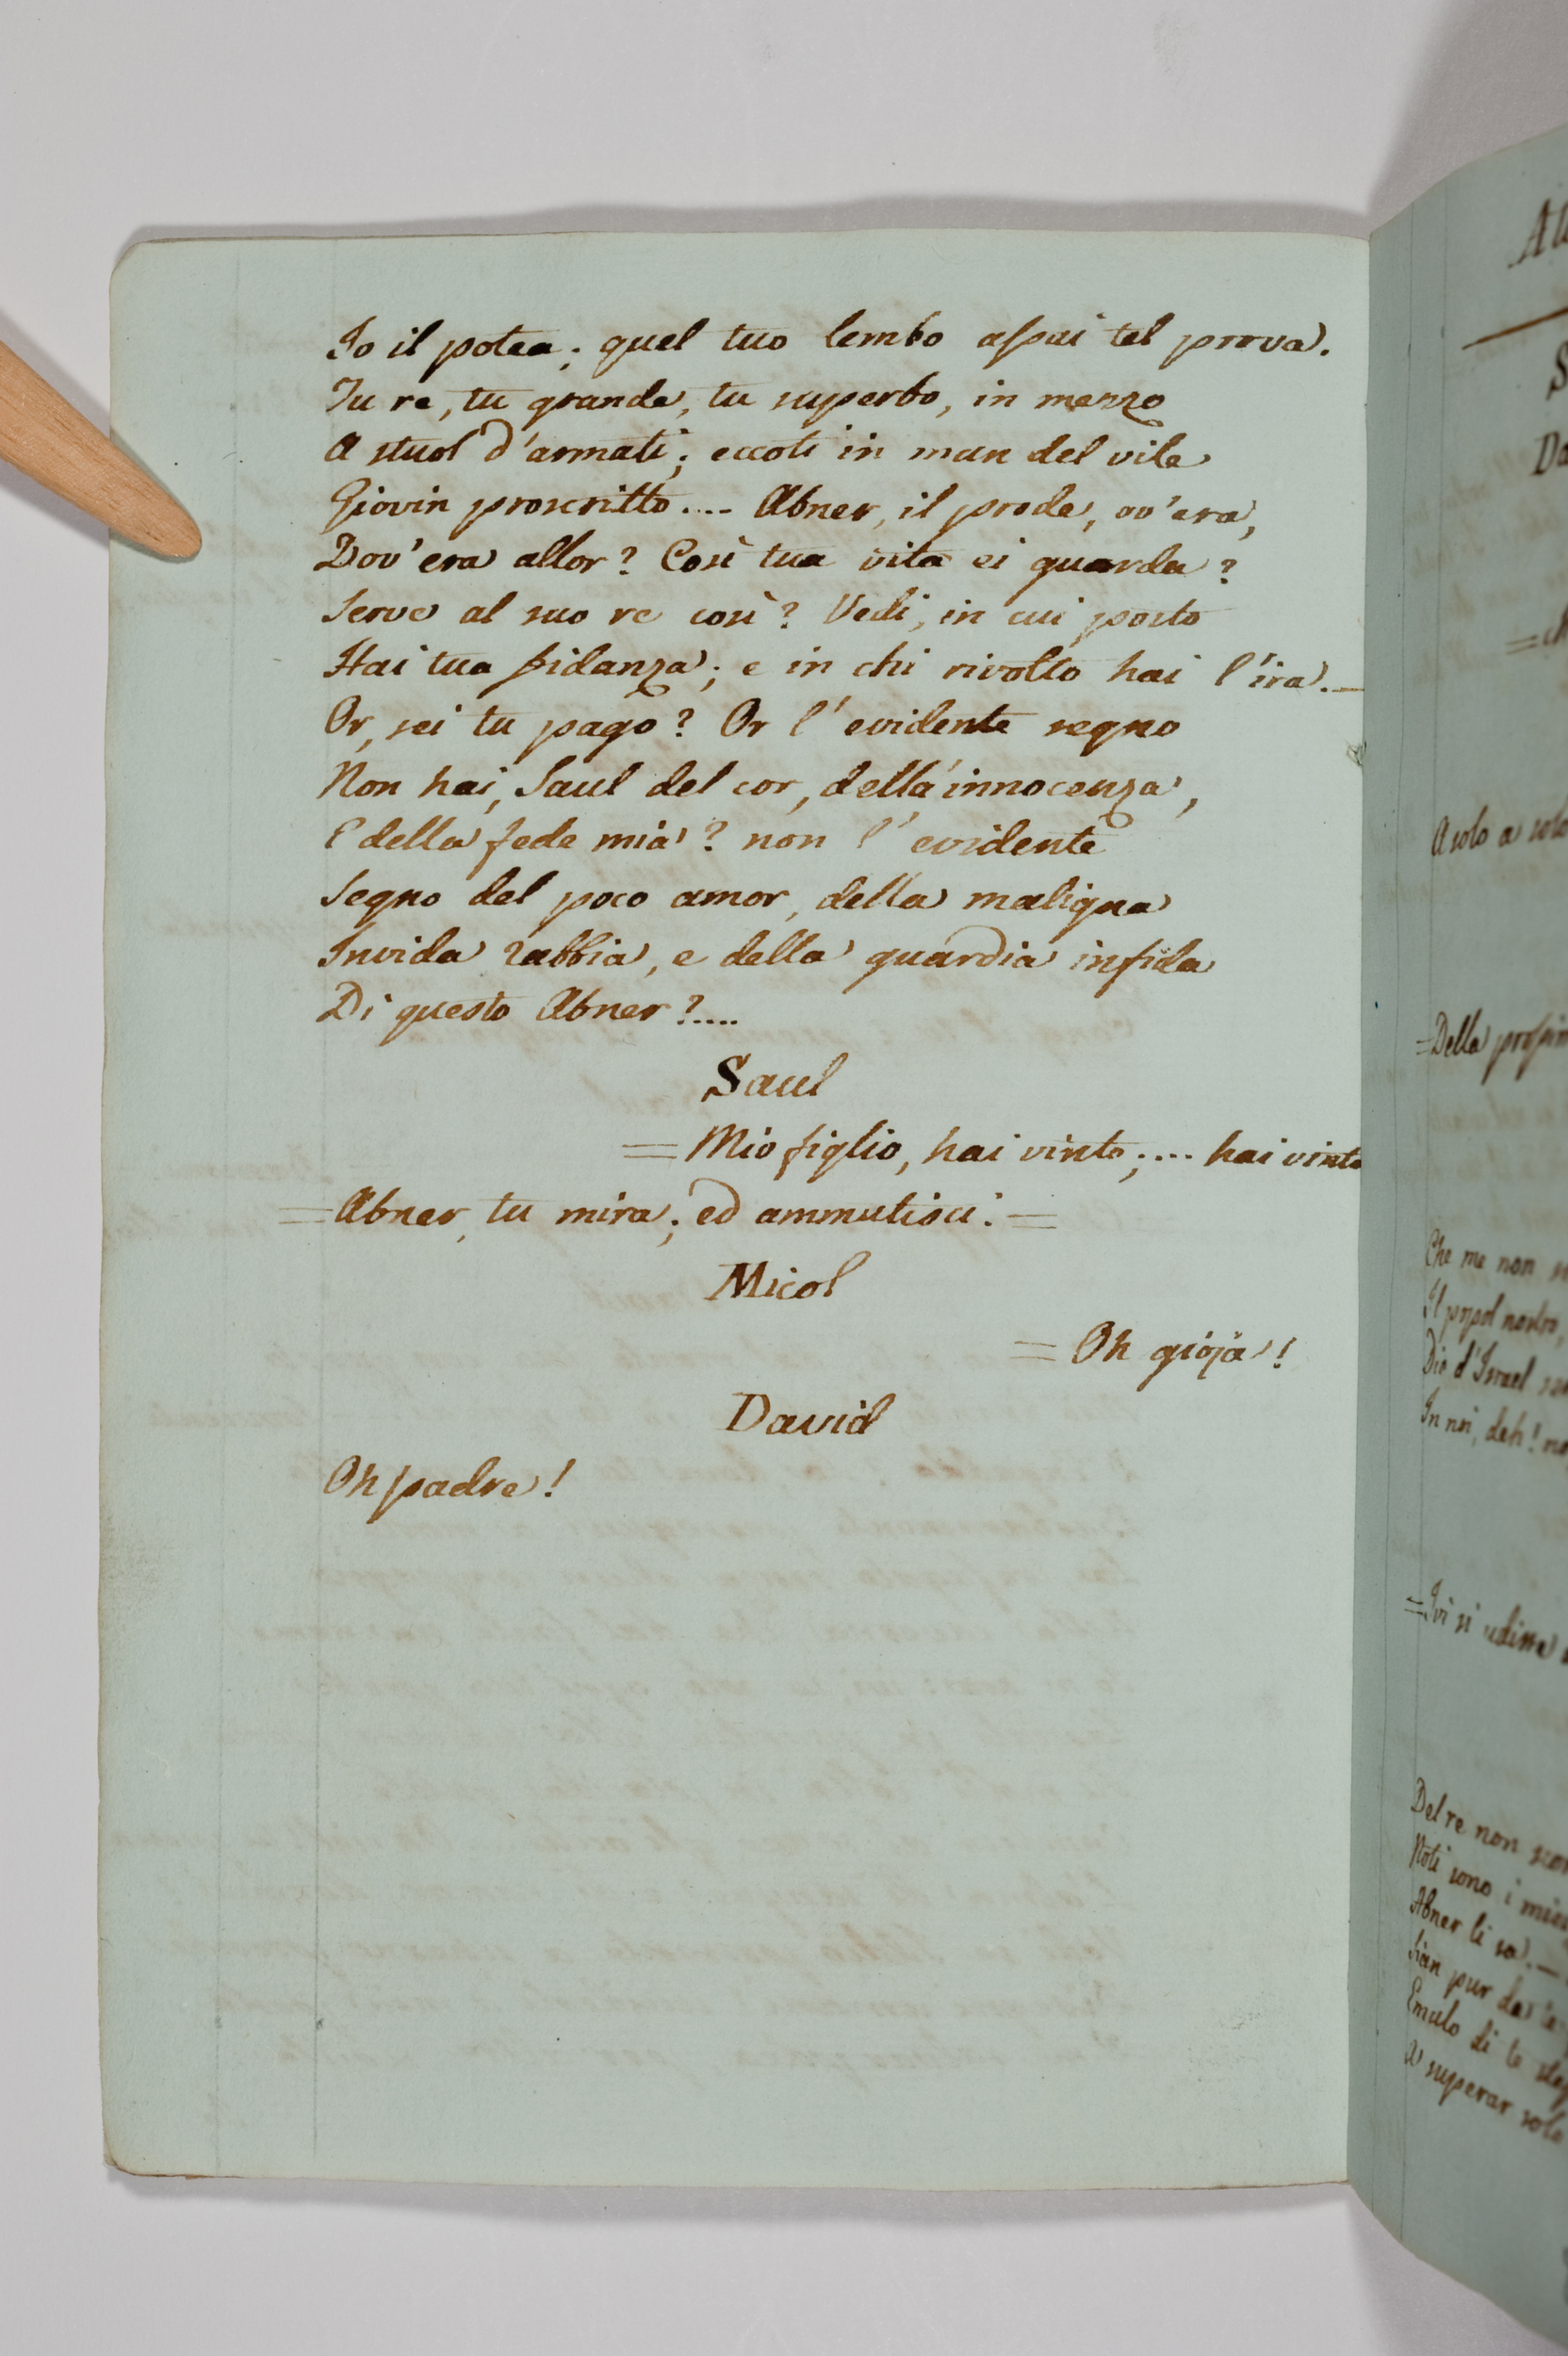 Io il potea; quel tuo lembo assai tel prova.
Tu re, tu grande, tu superbo, in mezzo
A stuol d'armati; eccoti in man del vile
Giovin proscritto.... Abner, il prode, ov'era,
Dov'era allor? Così tua vita ei guarda?
Serve al suo re così? Vedi, in cui posto
Hai tua fidanza; e in chi rivolto hai l'ira.—
Or, sei tu pago? Or l'evidente segno
Non hai, Saul del cor, della innocenza,
E della fede mia? non l'evidente
Segno del poco amor, della maligna
Invida rabbia, e della guardia infida
Di questo Abner?....
Saul
= Mio figlio, hai vinto;.... hai vinto
= Abner, tu mira; ed ammutisci. =
Micol
= Oh gioja!
David
Oh padre!
A solo a
= Della
Che me non
Il popol nostro,
Dio d'Israel
In noi, deh!
= Ivi si udisse
Del re non
Noti sono i
Abner li sa.—
Sian pur da te
Emulo di te
A superar solo